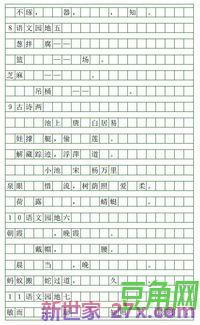 不琢， 器， ， 知。
8语文园地五
葱拌 腐——
篮 —— 场。
芝麻 —— 。
吊桶 —— 。
9古诗两
池上 唐 白居易
娃撑 艇，偷 莲。
解藏踪迹，浮萍 道。
小池 宋 杨万里
泉眼 惜 流，树荫照 爱 柔。
荷 露 ， 蜻蜓 。
10语文园地六
朝霞 ，晚霞 。
戴帽， 腰。
晨 当，晚 。
蚂蚁搬 蛇过道， 久 。
11语文园地七
敏而
豆角网
新世家 27x.com